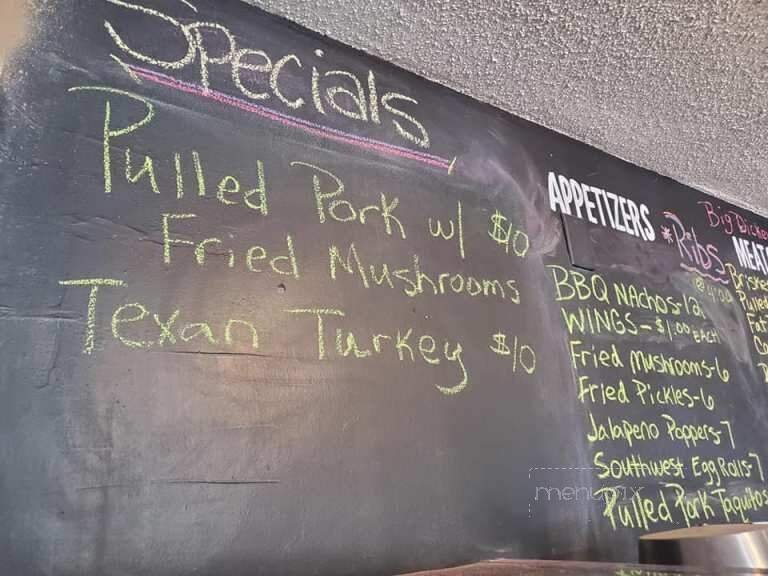 Specials
Pulled Pork w/ $10
Fried Mushrooms
Texan Turkey $10
APPETIZERS
BBQ NAchos-12
WINGS-$1.00 EACH
Fried Mushrooms-6
Fried Pickles-6
Jalapeno Poppers-7
Southwest Egg Rolls-7
Pulled Pork Taquitos
*Ribs
Big Dickes
MEAT
Pulled
Fat
menupix